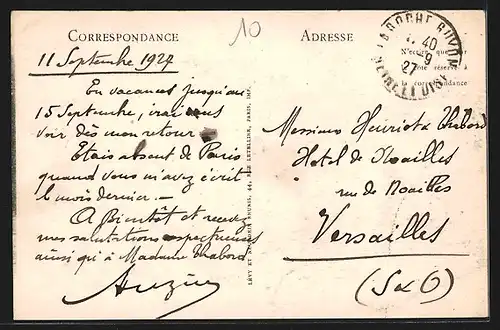 CORRESPONDANCE
10
ADRESSE
11 Septembre 1927
En vacances jusqu'au
15 Septembre, irai vous
voir dès mon retour
Etais absent de Paris
quand vous m'avez écrit
le mois dernier. —
A Bientôt et recevez
mes salutations respectueuses
ainsi qu'à Madame Thabord
LA ROCHE GUYON
40
9
27
SEINE ET OISE
N'écrire que sur
côté réservé à
la correspondance
LÉVY ET NEURDEIN RÉUNIS, 44, RUE LETELLIER, PARIS, IMP.
Messieurs Henriot & Thabord
Hotel de Noailles
rue de Noailles
Versailles
(S & O)